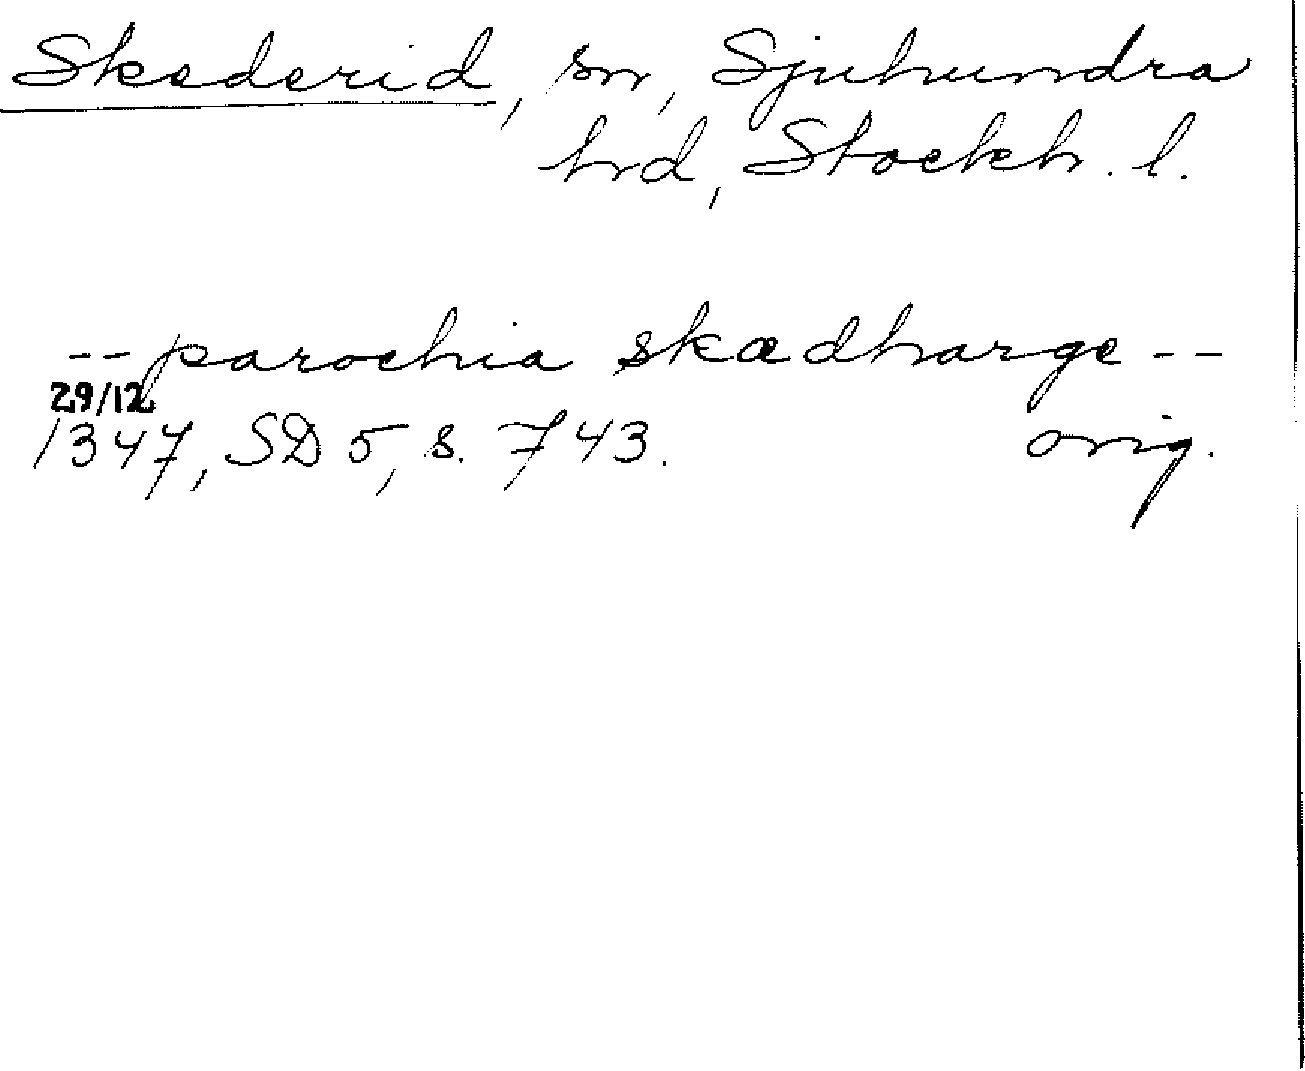 Skederid, sn, Sjuhundra
hd, Stockh. l.
-- parochia skædharge --
29/12
1347, SD 5, s. 743. orig.